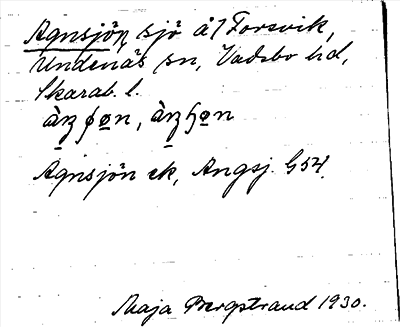 Agnsjön sjö å 1 Forsvik,
Undenäs sn, Vadsbo hd,
Skarab. l.
Agnsjön ek, Angsj. G 54.
Maja Bergstrand 1930.